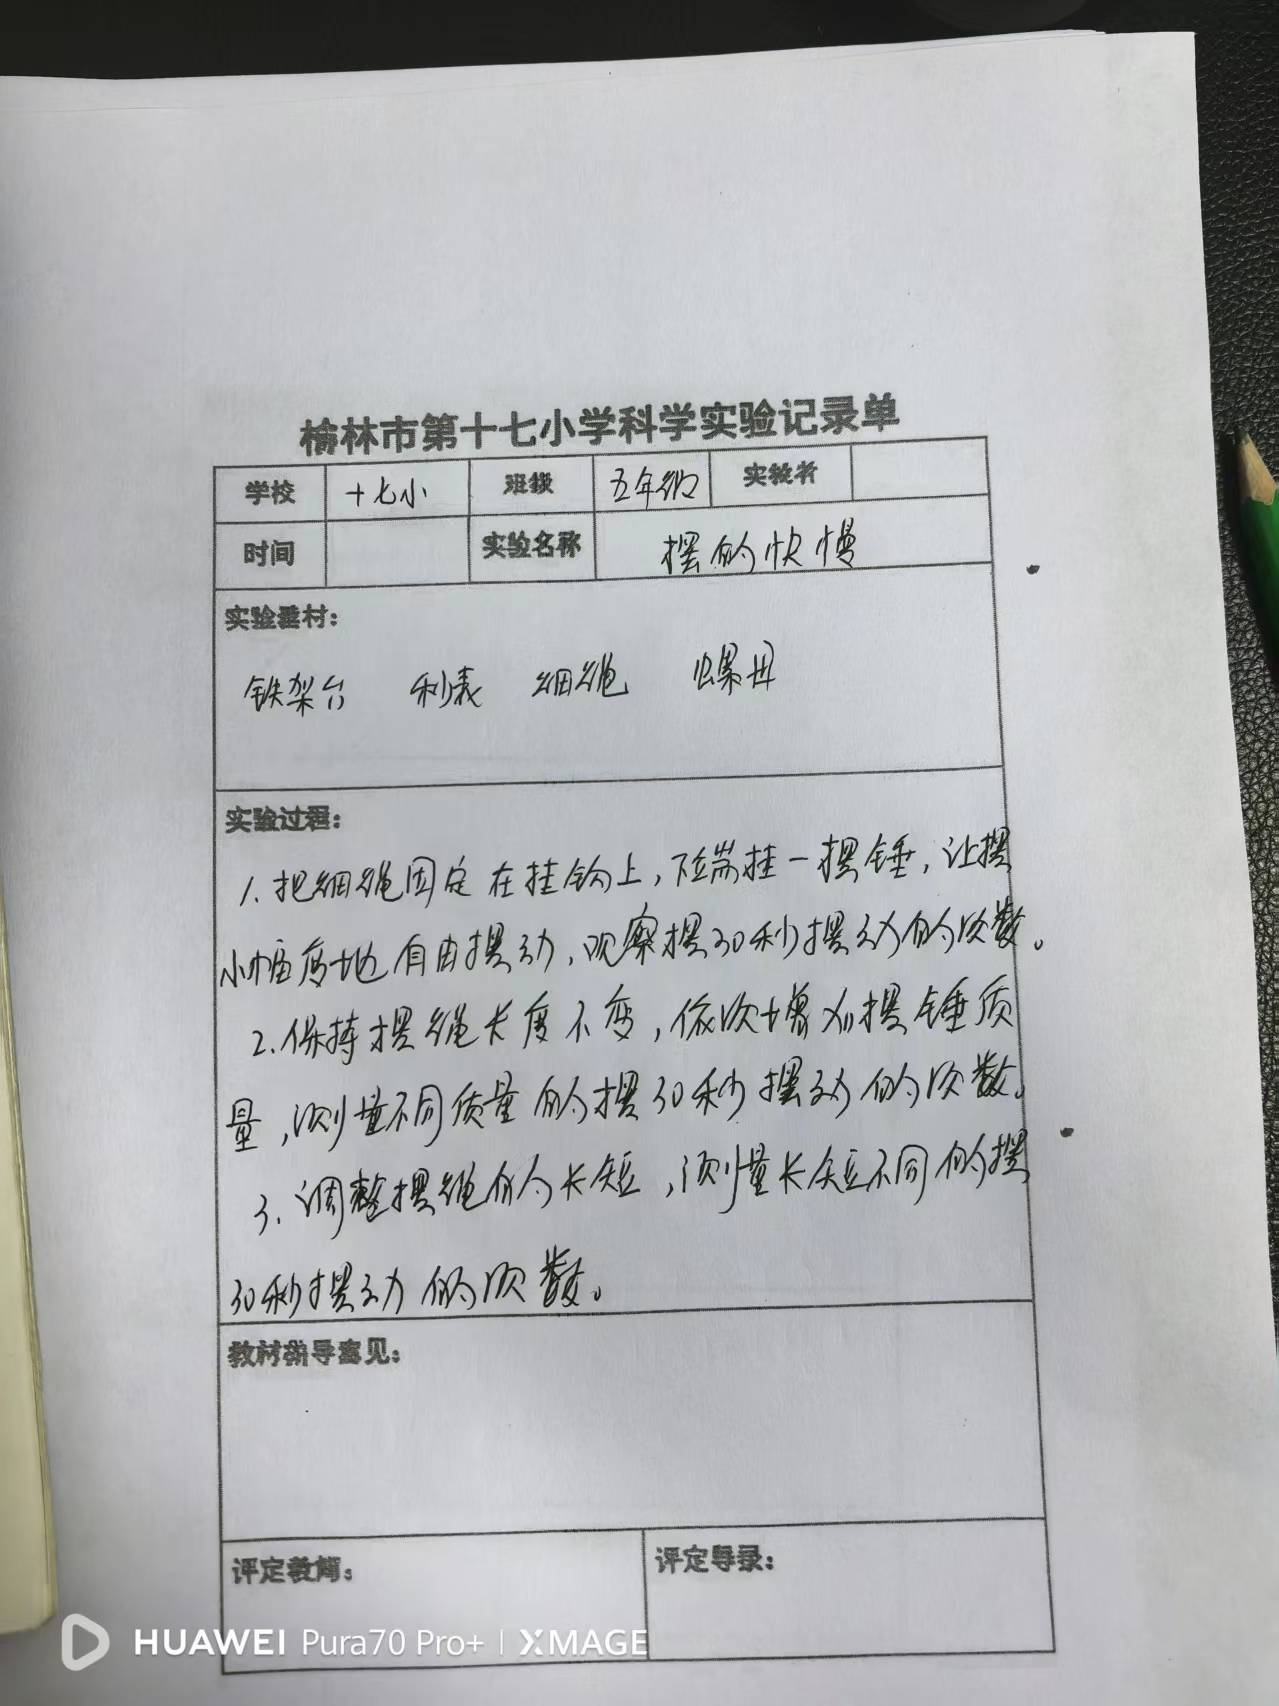 榆林市第十七小学科学实验记录单
学校 十七小 班级 五年级 实验者
时间 实验名称 摆的快慢
实验器材：
铁架台 秒表 细绳 螺母
实验过程：
1.把细绳固定在挂钩上，下端挂一摆锤，让摆
小幅度地自由摆动，观察摆30秒摆动的次数。
2.保持摆绳长度不变，依次增加摆锤质
量，测量不同质量的摆30秒摆动的次数。
3.调整摆绳的长短，测量长短不同的摆
30秒摆动的次数。
教材指导意见：
评定教师： 评定等录：
HUAWEI Pura70 Pro+ | XMAGE